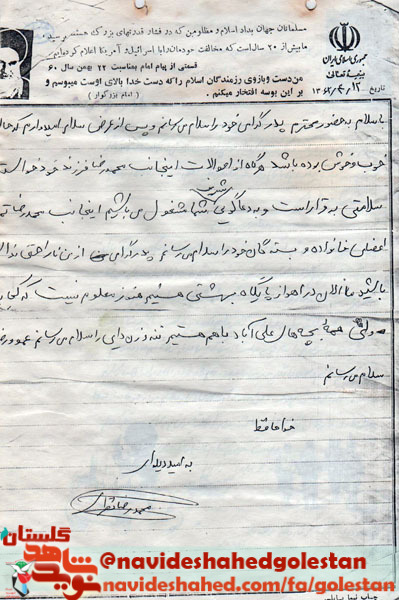 مسلمانان جهان بداد اسلام و مظلومین که در فشار قدرتهای بزرگ هستند برسید
ما بیش از ۲۰ سال است که مخالفت خودمان را با اسرائیل و آمریکا اعلام کرده‌ایم
قسمتی از پیام امام بمناسبت ۲۲ بهمن سال ۶۰
من دست و بازوی رزمندگان اسلام را که دست خدا بالای اوست میبوسم و
بر این بوسه افتخار میکنم.
( امام بزرگوار )
جمهوری اسلامی ایران
بسمه تعالی
تاریخ ۱۳۶۲/۴/۱۲
با سلام به حضور محترم پدر گرامی خود را سلام می رسانم و پس از عرض سلام امیدوارم که
خوب و خوش بوده باشد هرگاه از احوالات اینجانب محمدرضا فرزند خود خواسته
سلامتی برقرار است و به دعاگویی شما مشغول می باشیم اینجانب محمدرضا
اعضای خانواده و بستگان خود را سلام می رسانم پدر گرامی از من ناراحتی
باشید ما الان در اهواز پایگاه بهشتی هستیم هنوز معلوم نیست که کجا
ولی همهٔ بچه های علی آباد با هم هستیم ننه و زن دایی را سلام می رسانم عمو و
سلام می رسانم
خداحافظ
به امید دیدار
محمدرضا
گلستان
نوید شاهد
@navideshahedgolestan
navideshahed.com/fa/golestan